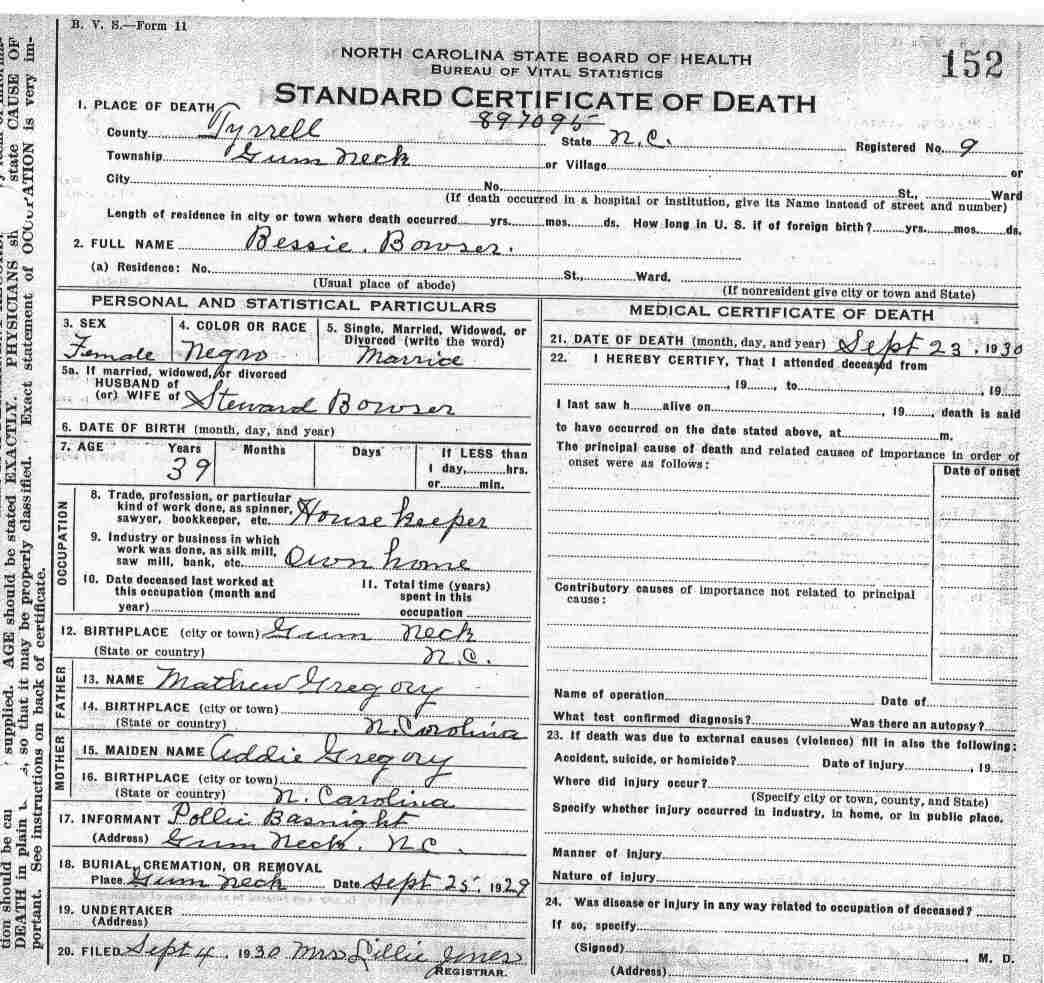 B. V. S.—Form 11
152
NORTH CAROLINA STATE BOARD OF HEALTH
BUREAU OF VITAL STATISTICS
STANDARD CERTIFICATE OF DEATH
897095
1. PLACE OF DEATH
County Tyrrell State N.C. Registered No. 9
Township Gum Neck or Village or
City No. St., Ward
(If death occurred in a hospital or institution, give its Name instead of street and number)
Length of residence in city or town where death occurred yrs. mos. ds. How long in U. S. if of foreign birth? yrs. mos. ds.
2. FULL NAME Bessie. Bowser.
(a) Residence: No. St., Ward.
(Usual place of abode) (If nonresident give city or town and State)
PERSONAL AND STATISTICAL PARTICULARS
3. SEX
Female
4. COLOR OR RACE
Negro
5. Single, Married, Widowed, or
Divorced (write the word)
Married
5a. If married, widowed, or divorced
HUSBAND of
(or) WIFE of Steward Bowser
6. DATE OF BIRTH (month, day, and year)
7. AGE Years Months Days If LESS than
1 day, hrs.
39 or min.
OCCUPATION
8. Trade, profession, or particular
kind of work done, as spinner,
sawyer, bookkeeper, etc. House keeper
9. Industry or business in which
work was done, as silk mill,
saw mill, bank, etc. Own home
10. Date deceased last worked at
this occupation (month and
year)
11. Total time (years)
spent in this
occupation
12. BIRTHPLACE (city or town) Gum Neck
(State or country) N.C.
FATHER
13. NAME Mathew Gregory
14. BIRTHPLACE (city or town)
(State or country) N. Carolina
MOTHER
15. MAIDEN NAME Addie Gregory
16. BIRTHPLACE (city or town)
(State or country) N. Carolina
17. INFORMANT Pollie Basnight
(Address) Gum Neck. N.C.
18. BURIAL, CREMATION, OR REMOVAL
Place Gum Neck Date Sept 25, 1929
19. UNDERTAKER
(Address)
20. FILED Sept 4, 1930 Mrs Lillie Jones
REGISTRAR.
MEDICAL CERTIFICATE OF DEATH
21. DATE OF DEATH (month, day, and year) Sept 23, 1930
22. I HEREBY CERTIFY, That I attended deceased from
, 19 , to , 19
I last saw h alive on , 19 , death is said
to have occurred on the date stated above, at m.
The principal cause of death and related causes of importance in order of
onset were as follows:
Date of onset
Contributory causes of importance not related to principal
cause:
Name of operation Date of
What test confirmed diagnosis? Was there an autopsy?
23. If death was due to external causes (violence) fill in also the following:
Accident, suicide, or homicide? Date of injury , 19
Where did injury occur?
(Specify city or town, county, and State)
Specify whether injury occurred in industry, in home, or in public place.
Manner of injury
Nature of injury
24. Was disease or injury in any way related to occupation of deceased?
If so, specify
(Signed) , M. D.
(Address)
state CAUSE OF
OCCUPATION is very im-
supplied. AGE should be stated EXACTLY. PHYSICIANS
so that it may be properly classified. Exact statement of
tion should be
DEATH in plain
portant. See instructions on back of certificate.